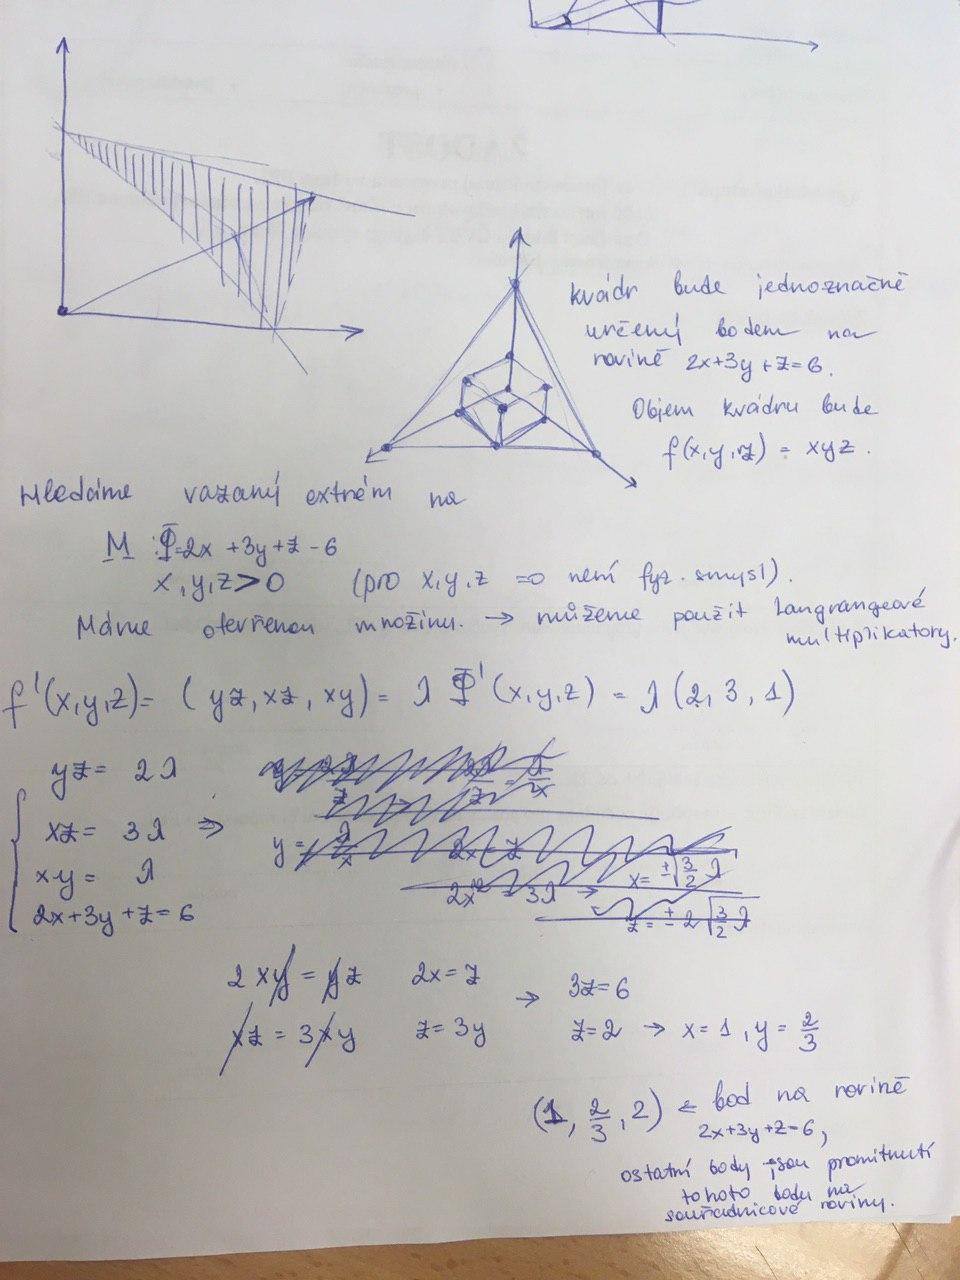 kvádr bude jednoznačně
určený bodem na
rovině 2x+3y+z=6.
Objem kvádru bude
f(x,y,z) = xyz.
Hledáme vazaný extrém na
M : Φ=2x+3y+z-6
x,y,z>0 (pro x,y,z =0 není fyz. smysl).
Máme otevřenou množinu. → můžeme použít Langrangeové
multiplikatory.
f'(x,y,z)= (yz, xz, xy) = λ Φ'(x,y,z) = λ (2, 3, 1)
yz= 2λ
xz= 3λ ⇒
xy= λ
2x+3y+z=6
2xy = yz 2x=z → 3z=6
xz = 3xy z=3y z=2 → x=1, y=2/3
(1, 2/3, 2) ← bod na rovině
2x+3y+z=6,
ostatní body jsou promítnutí
tohoto bodu na
souřadnicové roviny.